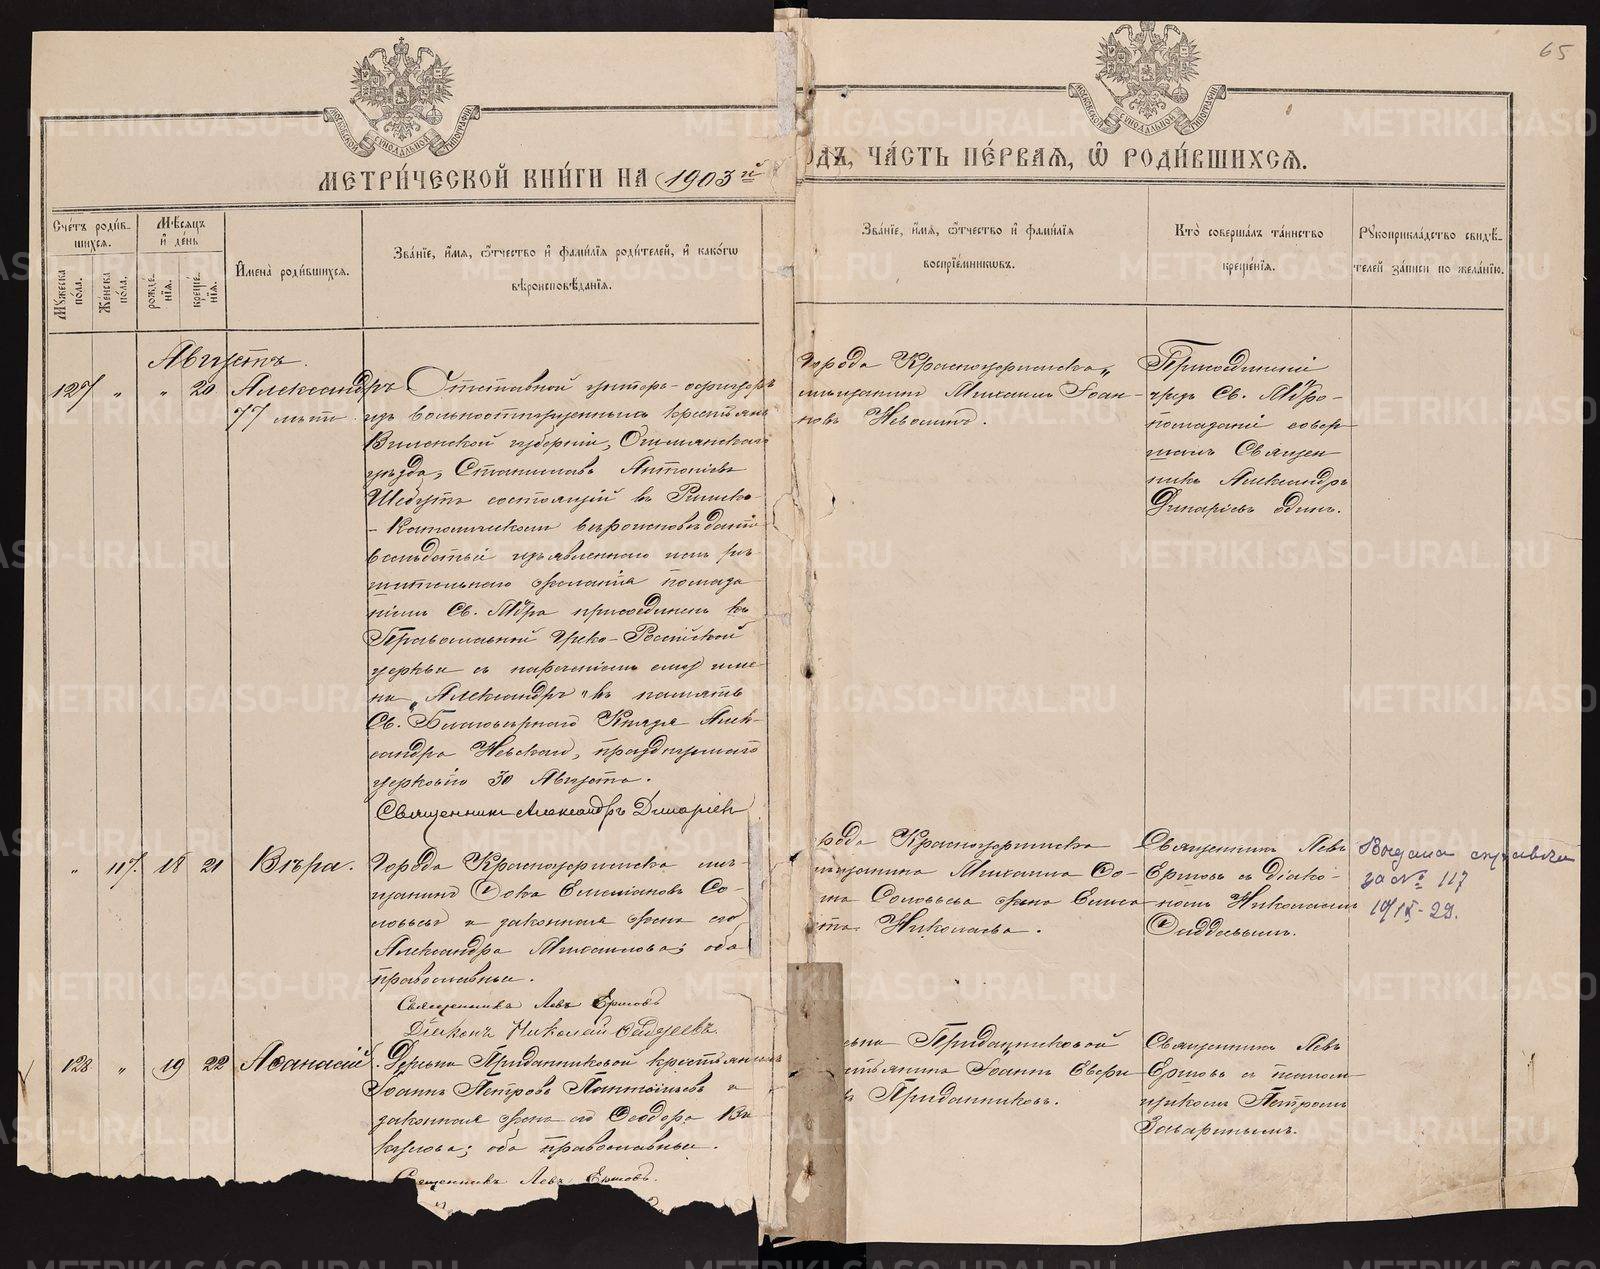 65
МОСКОВСКОЙ СѴНОДАЛЬНОЙ ТИПОГРАФІИ
МОСКОВСКОЙ СѴНОДАЛЬНОЙ ТИПОГРАФІИ
МЕТРИ́ЧЕСКОЙ КНИ́ГИ НА 1903й
ОДЪ, ЧА́СТЬ ПЕ́РВАѦ, Ѡ҆ РОДИ́ВШИХСѦ.
Сче́тъ роди́в-
шихсѧ.
Мꙋжеска по́ла.
Же́нска по́ла.
Мѣ́сѧцъ
и҆ де́нь
рожде́-
нїѧ.
креще́-
нїѧ.
И҆мена̀ роди́вшихсѧ.
Зва́нїе, и҆́мѧ, ѻ҆́тчество и҆ фами́лїѧ роди́телей, и҆ како́гѡ
вѣроисповѣ́данїѧ.
Зва́нїе, и҆́мѧ, ѻ҆́тчество и҆ фами́лїѧ
воспрїе́мникѡвъ.
Кто̀ соверша́лъ та́инство
креще́нїѧ.
Рꙋкоприкла́дство свидѣ́-
телей за́писи по жела́нїю.
Августъ.
127 " " 20 Александръ
77 лѣтъ.
Отставной унтеръ-офицеръ
изъ вольноотпущенныхъ крестьянъ
Виленской губерніи, Ошмянскаго
уѣзда, Станиславъ Антоніевъ
состоящій въ Римско-
-Католическомъ вѣроисповѣданіи
вслѣдствіе изъявленнаго имъ рѣ-
шительнаго желанія помаза-
ніемъ Св. Мѵра присоединенъ къ
Православной Греко-Россійской
церкви съ нареченіемъ ему име-
ни „Александръ" въ память
Св. Благовѣрнаго Князя Алек-
сандра Невскаго, празднуемаго
церковію 30 Августа.
Священникъ Александръ
города Красноуфимска
мѣщанинъ Михаилъ Іоан-
новъ Неволинъ.
Присоединеніе
чрезъ Св. Мѵро-
помазаніе совер-
шалъ Священ
никъ Александръ
одинъ.
" 117. 18 21 Вѣра.
Города Красноуфимска мѣ-
щанинъ Ѳока Емеліановъ Со-
ловьевъ и законная жена его
Александра Михаилова; оба
православные.
Священникъ Левъ Ершовъ
Діаконъ Николай Ѳаддеевъ.
рода Красноуфимска
мѣщанина Михаила Ѳо-
Соловьева жена Елиса
Николаева.
Священникъ Левъ
Ершовъ съ діако-
номъ Николаемъ
Ѳаддеевымъ.
Выдана справка
за № 117
10/IX-29.
128 " 19 22 Аѳанасій.
Деревни Приданниковой крестьянинъ
Іоаннъ Петровъ Пантелѣевъ и
законная жена его Ѳеодора Ва
оба православные.
Священникъ Левъ Ершовъ.
Приданниковой
Іоаннъ
Приданниковъ.
Священникъ Левъ
Ершовъ съ псалом-
щикомъ Петромъ
METRIKI.GASO-URAL.RU